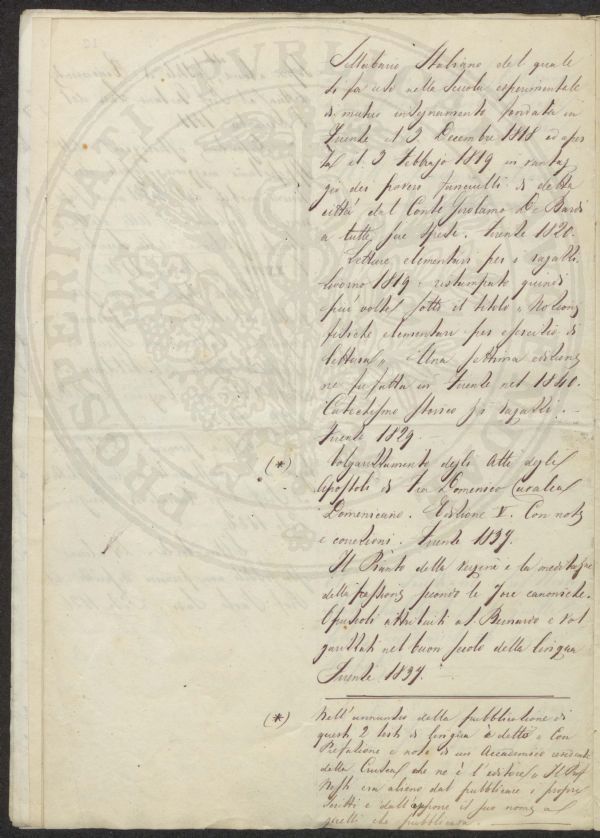 Sillabario Italiano del quale
si fa uso nella Scuola esperimentale
di mutuo insegnamento fondata in
Firenze il 3. Decembre 1818 ed aper
ta il 3 Febbrajo 1819 in vantag
gio dei poveri fanciulli di detta
città dal Conte Girolamo De Bardi
a tutte sue spese. Firenze 1820.
Letture elementari per i ragazzi.
Livorno 1819. ristampato quindi
più volte sotto il titolo „ Nozioni
fisiche elementari per esercizio di
lettura „ Una settima edizio
ne fu fatta in Firenze nel 1840.
Catechismo storico pi ragazzi. —
Firenze 1829.
(*) Volgarizzamento degli Atti degli
Apostoli di Fra Domenico Cavalca
Domenicano. Edizione V. Con note
e correzioni. Firenze 1837.
Il Pianto della Vergine e la meditazione
della passione secondo le sore canoniche.
Opuscoli attribuiti a S. Bernardo e Vol
garizzati nel buon secolo della lingua
Firenze 1837.
(*) Nell'annunzio della pubblicazione di
questi 2 testi di lingua è detto „ Con
Prefazione e note di un Accademico residente
della Crusca che ne è l'editore „ Il Prof
Nesti era alieno dal pubblicare i proprj
scritti e dall'apporre il suo nome a
quelli che pubblicava.
PROSPERITATI